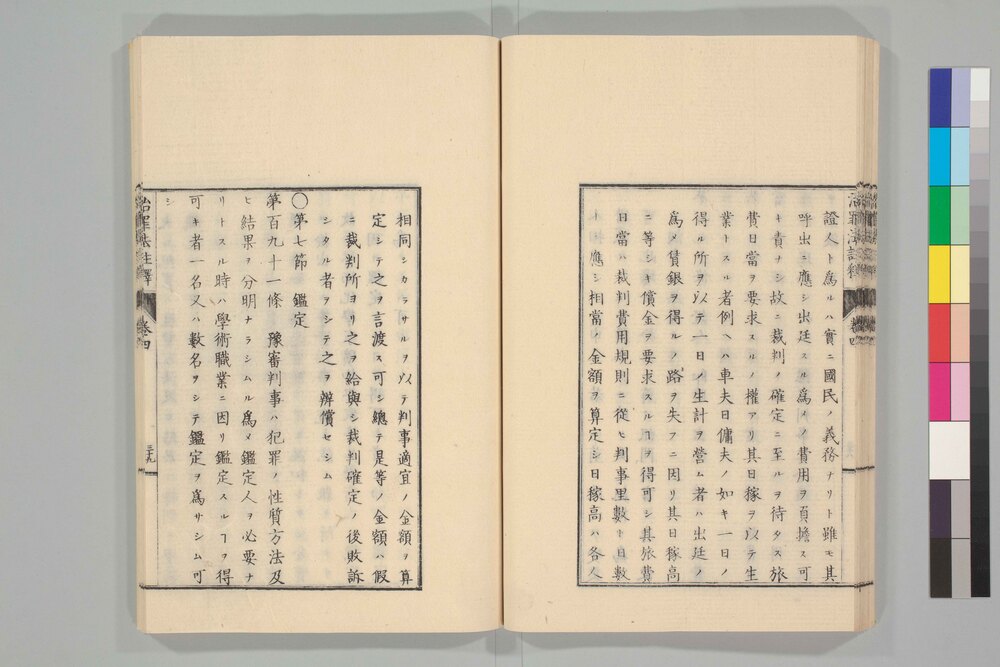 證人ト爲ルハ實ニ國民ノ義務ナリト雖モ其
呼出ニ應シ出廷スル爲メノ費用ヲ負擔ス可
キ責ナシ故ニ裁判ノ確定ニ至ルヲ待タス旅
費日當ヲ要求スルノ權アリ其日稼ヲ以テ生
業トスル者例ヘハ車夫日傭夫ノ如キ一日ノ
得ル所ヲ以テ一日ノ生計ヲ營ム者ハ出廷ノ
爲メ賃銀ヲ得ルノ路ヲ失フニ因リ其日稼高
ニ等シキ償金ヲ要求スルヿヲ得可シ其旅費
日當ハ裁判費用規則ニ從ヒ判事里數ト日數
ト相應シ相當ノ金額ヲ算定シ日稼高ハ各人
相同シカラサルヲ以テ判事適宜ノ金額ヲ算
定シテ之ヲ言渡ス可シ總テ是等ノ金額ハ假
ニ裁判所ヨリ之ヲ給與シ裁判確定ノ後敗訴
シタル者ヲシテ之ヲ辨償セシム
〇第七節 鑑定
第百九十一條 豫審判事ハ犯罪ノ性質方法及
ヒ結果ヲ分明ナラシムル爲メ鑑定人ヲ必要ナ
リトスル時ハ學術職業ニ因リ鑑定スルヿヲ得
可キ者一名又ハ數名ヲシテ鑑定ヲ爲サシム可
シ
治罪法註釋
卷四
三十九